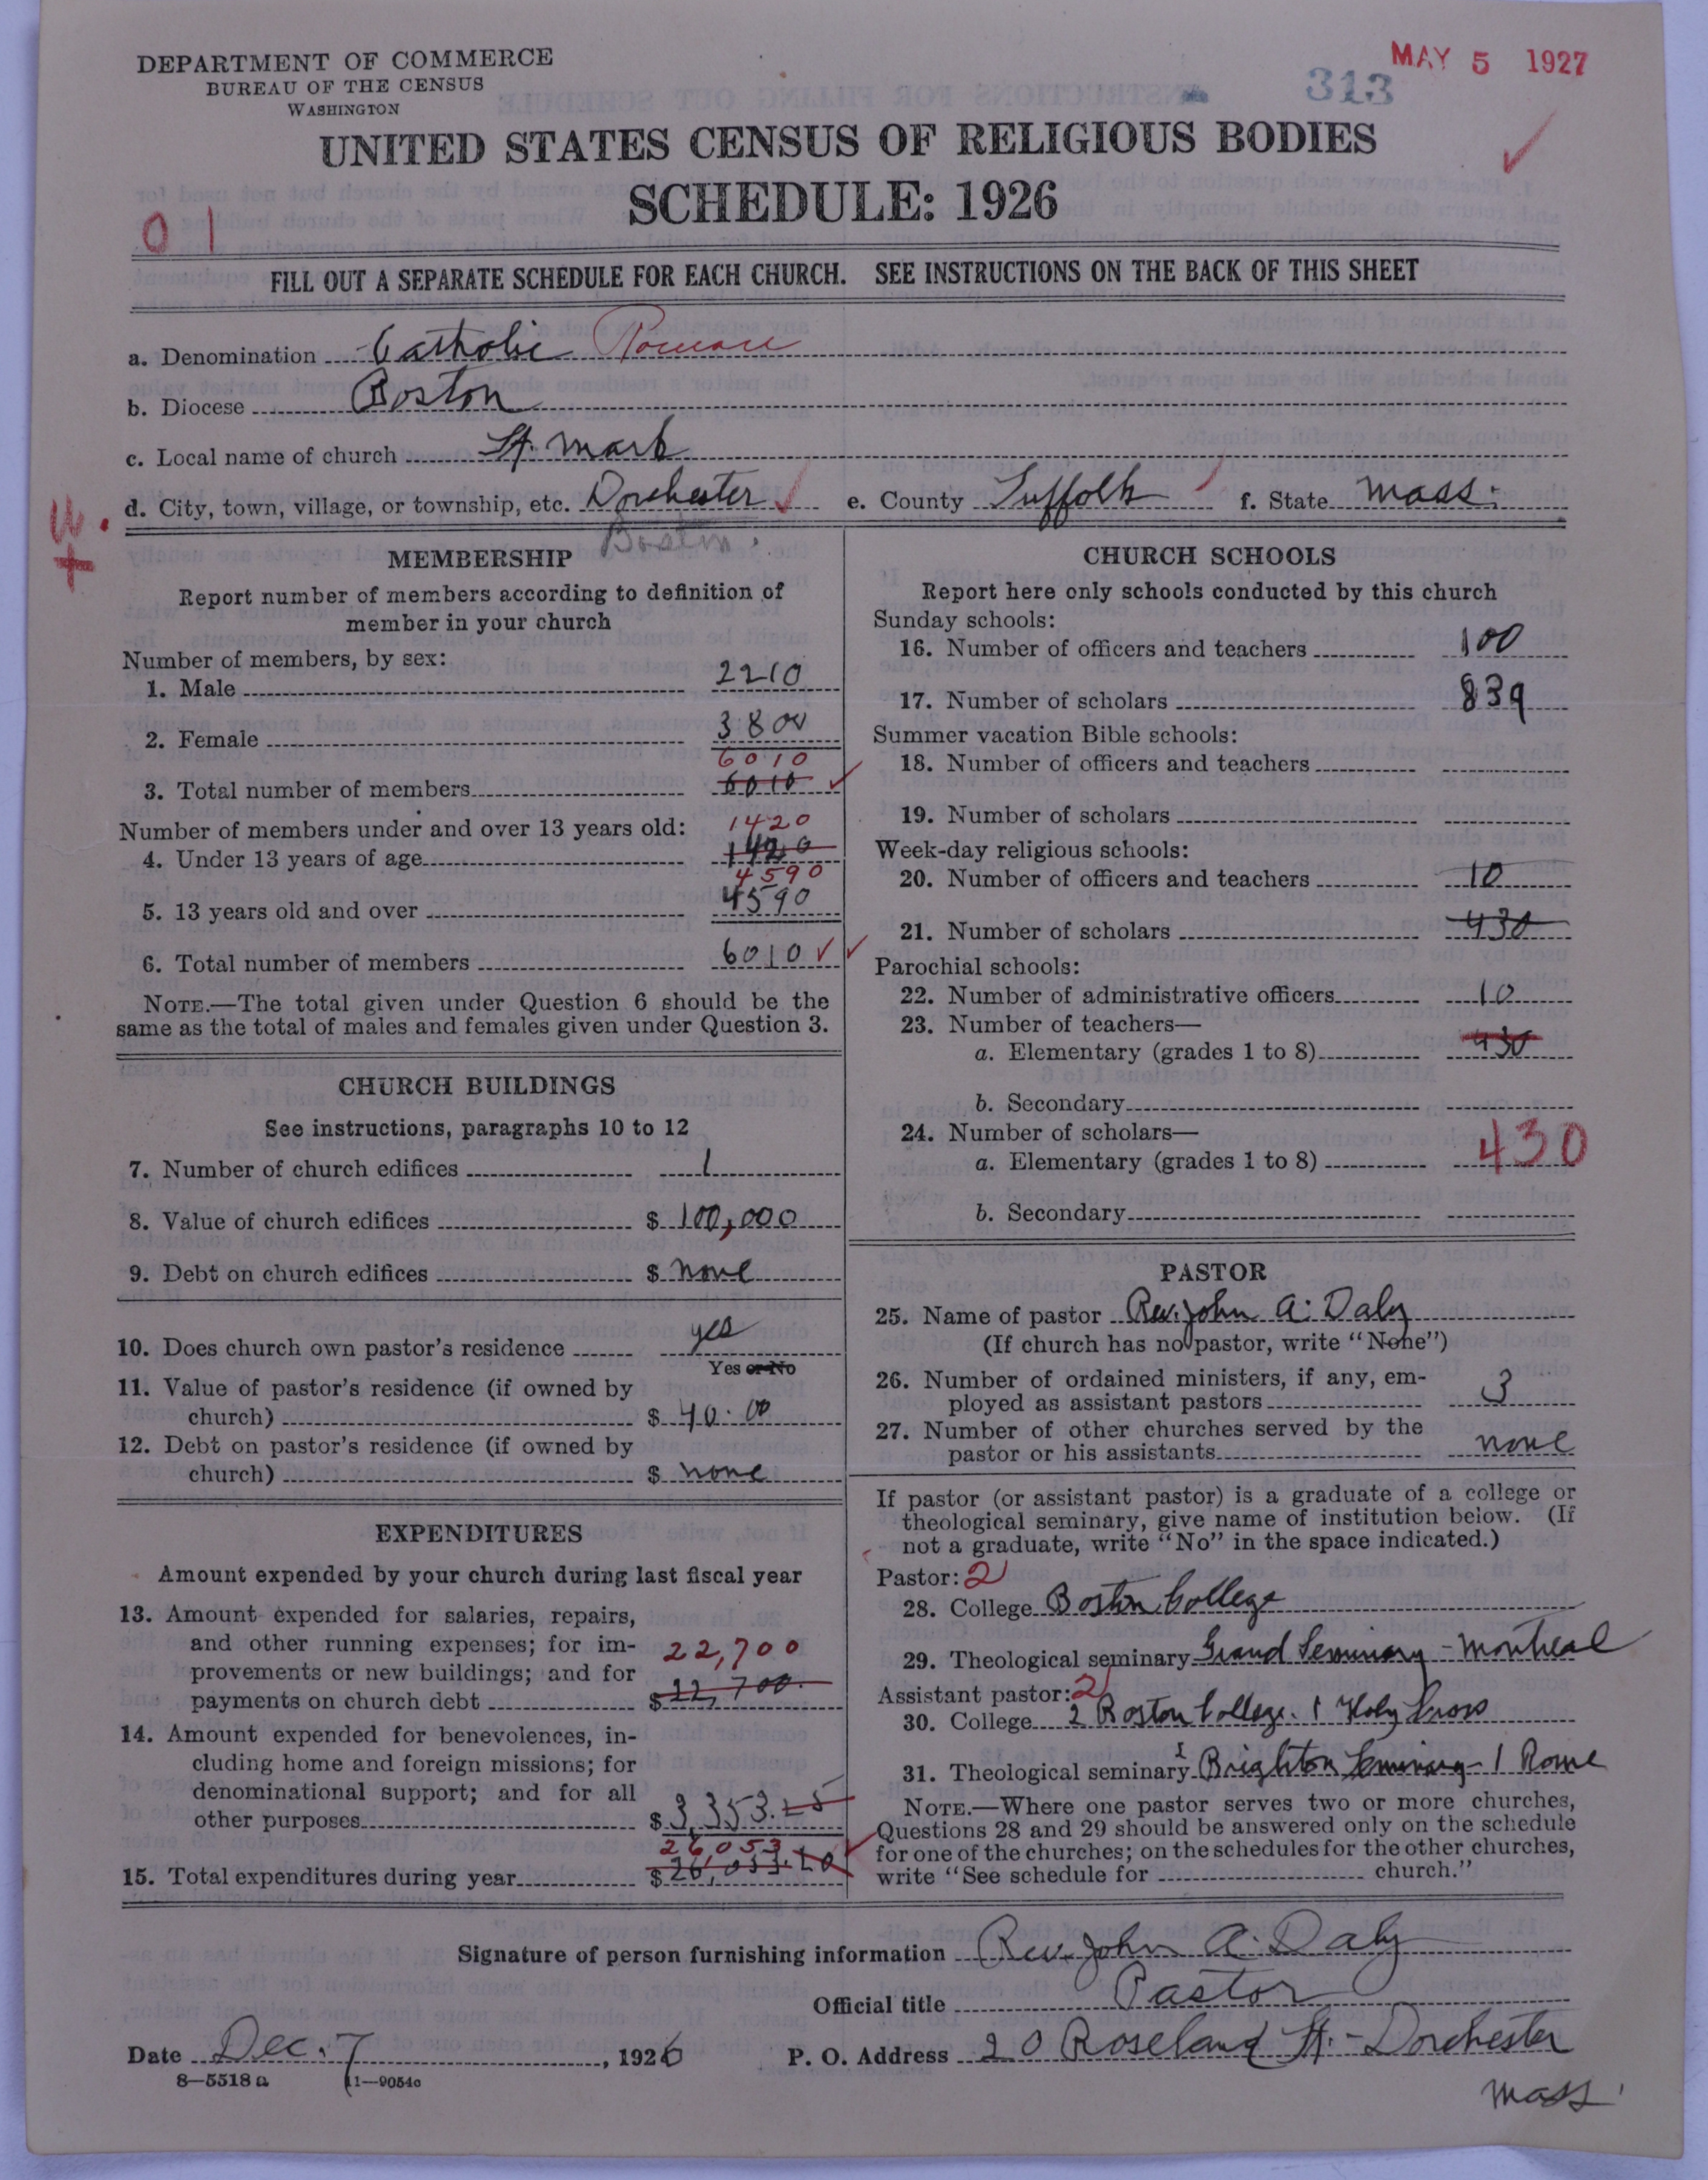 DEPARTMENT OF COMMERCE
BUREAU OF THE CENSUS
WASHINGTON
MAY 5 1927
313
UNITED STATES CENSUS OF RELIGIOUS BODIES
SCHEDULE: 1926
01
FILL OUT A SEPARATE SCHEDULE FOR EACH CHURCH. SEE INSTRUCTIONS ON THE BACK OF THIS SHEET
a. Denomination Catholic Roman
b. Diocese Boston
c. Local name of church St. Mark
d. City, town, village, or township, etc. Dorchester e. County Suffolk f. State Mass.
Boston.
MEMBERSHIP
Report number of members according to definition of
member in your church
Number of members, by sex:
1. Male 2210
2. Female 3800
6010
3. Total number of members 6010
Number of members under and over 13 years old:
1420
4. Under 13 years of age 1420
4590
5. 13 years old and over 4590
6. Total number of members 6010
NOTE.—The total given under Question 6 should be the
same as the total of males and females given under Question 3.
CHURCH BUILDINGS
See instructions, paragraphs 10 to 12
7. Number of church edifices 1
8. Value of church edifices $ 100,000
9. Debt on church edifices $ none
10. Does church own pastor's residence yes
Yes or No
11. Value of pastor's residence (if owned by
church) $ 40.00
12. Debt on pastor's residence (if owned by
church) $ none
EXPENDITURES
Amount expended by your church during last fiscal year
13. Amount expended for salaries, repairs,
and other running expenses; for im-
22,700
provements or new buildings; and for
payments on church debt $ 22,700.
14. Amount expended for benevolences, in-
cluding home and foreign missions; for
denominational support; and for all
other purposes $ 3,353.25
26,053
15. Total expenditures during year $ 26,053.20
CHURCH SCHOOLS
Report here only schools conducted by this church
Sunday schools:
16. Number of officers and teachers 100
17. Number of scholars 839
Summer vacation Bible schools:
18. Number of officers and teachers
19. Number of scholars
Week-day religious schools:
20. Number of officers and teachers 10
21. Number of scholars 430
Parochial schools:
22. Number of administrative officers 10
23. Number of teachers—
a. Elementary (grades 1 to 8) 430
b. Secondary
24. Number of scholars—
a. Elementary (grades 1 to 8) 430
b. Secondary
PASTOR
25. Name of pastor Rev. John A. Daly
(If church has no pastor, write "None")
26. Number of ordained ministers, if any, em-
ployed as assistant pastors 3
27. Number of other churches served by the
pastor or his assistants none
If pastor (or assistant pastor) is a graduate of a college or
theological seminary, give name of institution below. (If
not a graduate, write "No" in the space indicated.)
Pastor: 2
28. College Boston College
29. Theological seminary Grand Seminary - Montreal
Assistant pastor: 2
30. College 2 Boston College. 1 Holy Cross
31. Theological seminary Brighton Seminary - 1 Rome
NOTE.—Where one pastor serves two or more churches,
Questions 28 and 29 should be answered only on the schedule
for one of the churches; on the schedules for the other churches,
write "See schedule for church."
Signature of person furnishing information Rev. John A. Daly
Official title Pastor
Date Dec. 7, 1926 P. O. Address 20 Roseland St. - Dorchester
Mass.
8—5518 a 11—9054a